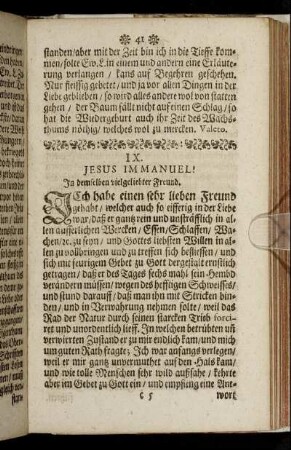 41
standen/ aber mit der Zeit bin ich in die Tieffe kom-
men/ solte Ew. L. in einem und andern eine Erläute-
rung verlangen / kans auf Begehren geschehen.
Nur fleissig gebetet/ und ja vor allen Dingen in der
Liebe geblieben / so wird alles andere wol von statten
gehen / der Baum fällt nicht auf einen Schlag/ so
hat die Wiedergeburt auch ihr Zeit des Wachs-
thums nöthig/ welches wol zu mercken. Valete.
IX.
JESUS IMMANUEL!
In demselben vielgeliebter Freund.
ICh habe einen sehr lieben Freund
gehabt/ welcher auch so eifferig in der Liebe
war/ daß er gantz rein und unsträfflich in al-
len äusserlichen Wercken/ Essen/ Schlaffen/ Wa-
chen/ &c. zu seyn/ und Gottes liebsten Willen in al-
len zu vollbringen und zu treffen sich beflissen/ und
sich mit feurigem Gebet zu Gott dergestalt ernstlich
getragen/ daß er des Tages sechs mahl sein Hembd
verändern müssen/ wegen des hefftigen Schweisses/
und stund darauff/ daß man ihn mit Stricken bin-
den/ und in Verwahrung nehmen solte/ weil das
Rad der Natur durch seinen starcken Trieb forci-
ret und unordentlich lieff. In welchen betrübten uñ
verwirrten Zustand er zu mir endlich kam/ und mich
um guten Rath fragte; Ich war anfangs verlegen/
weil er mir gantz unvermuthet auf den Hals kam/
und wie tolle Menschen sehr wild außsahe/ kehrte
aber im Gebet zu Gott ein / und empfieng eine Ant-
c 5 wort